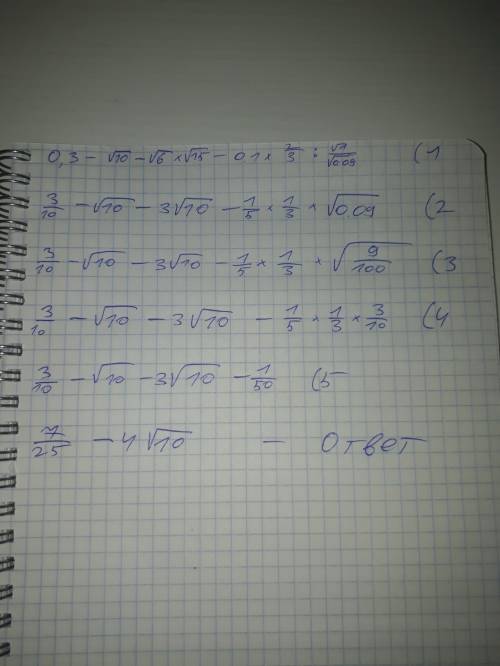 0,3 - √10 - √6 × √15 - 0,1 × 2/3 : √1/√0,09 (1
3/10 - √10 - 3√10 - 1/5 × 1/3 × √0,09 (2
3/10 - √10 - 3√10 - 1/5 × 1/3 × √9/100 (3
3/10 - √10 - 3√10 - 1/5 × 1/3 × 3/10 (4
3/10 - √10 - 3√10 - 1/50 (5
7/25 - 4√10 - Ответ